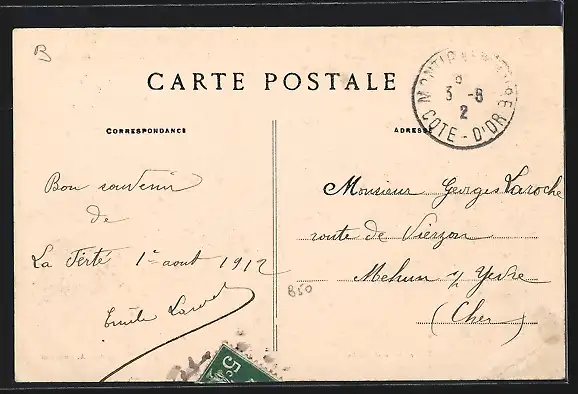 B
CARTE POSTALE
CORRESPONDANCE
ADRESSE
3 -8
2
COTE-D'OR
Bon souvenir
de
La Ferté 1er aout 1912
Emile
Monsieur Georges Laroche
route de Vierzon
Mehun s/ Yevre
(Cher)
850
5c